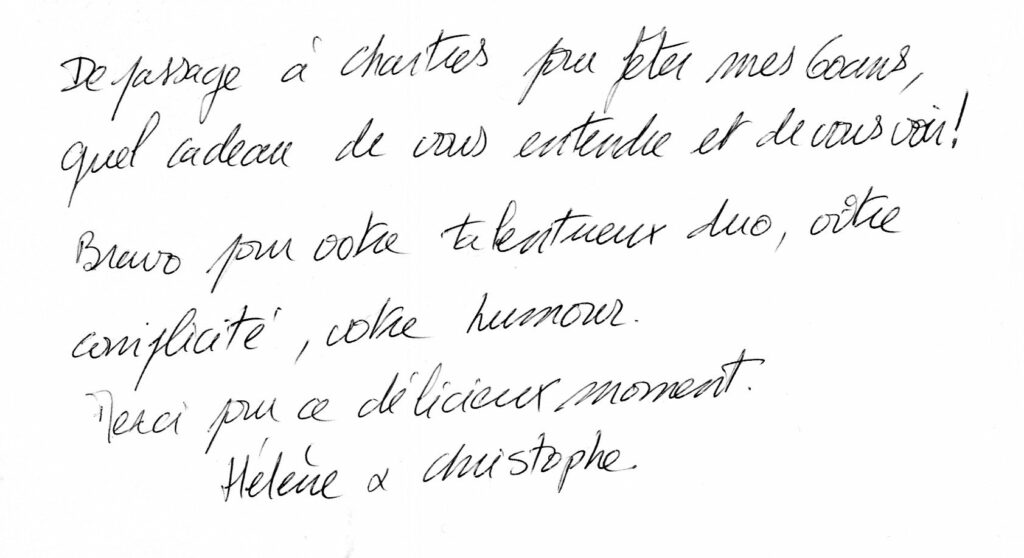 De passage à Chartres pour fêter mes 60 ans,
quel cadeau de vous entendre et de vous voir !
Bravo pour votre talentueux duo, vôtre
complicité, votre humour.
Merci pour ce délicieux moment.
Hélène & Christophe